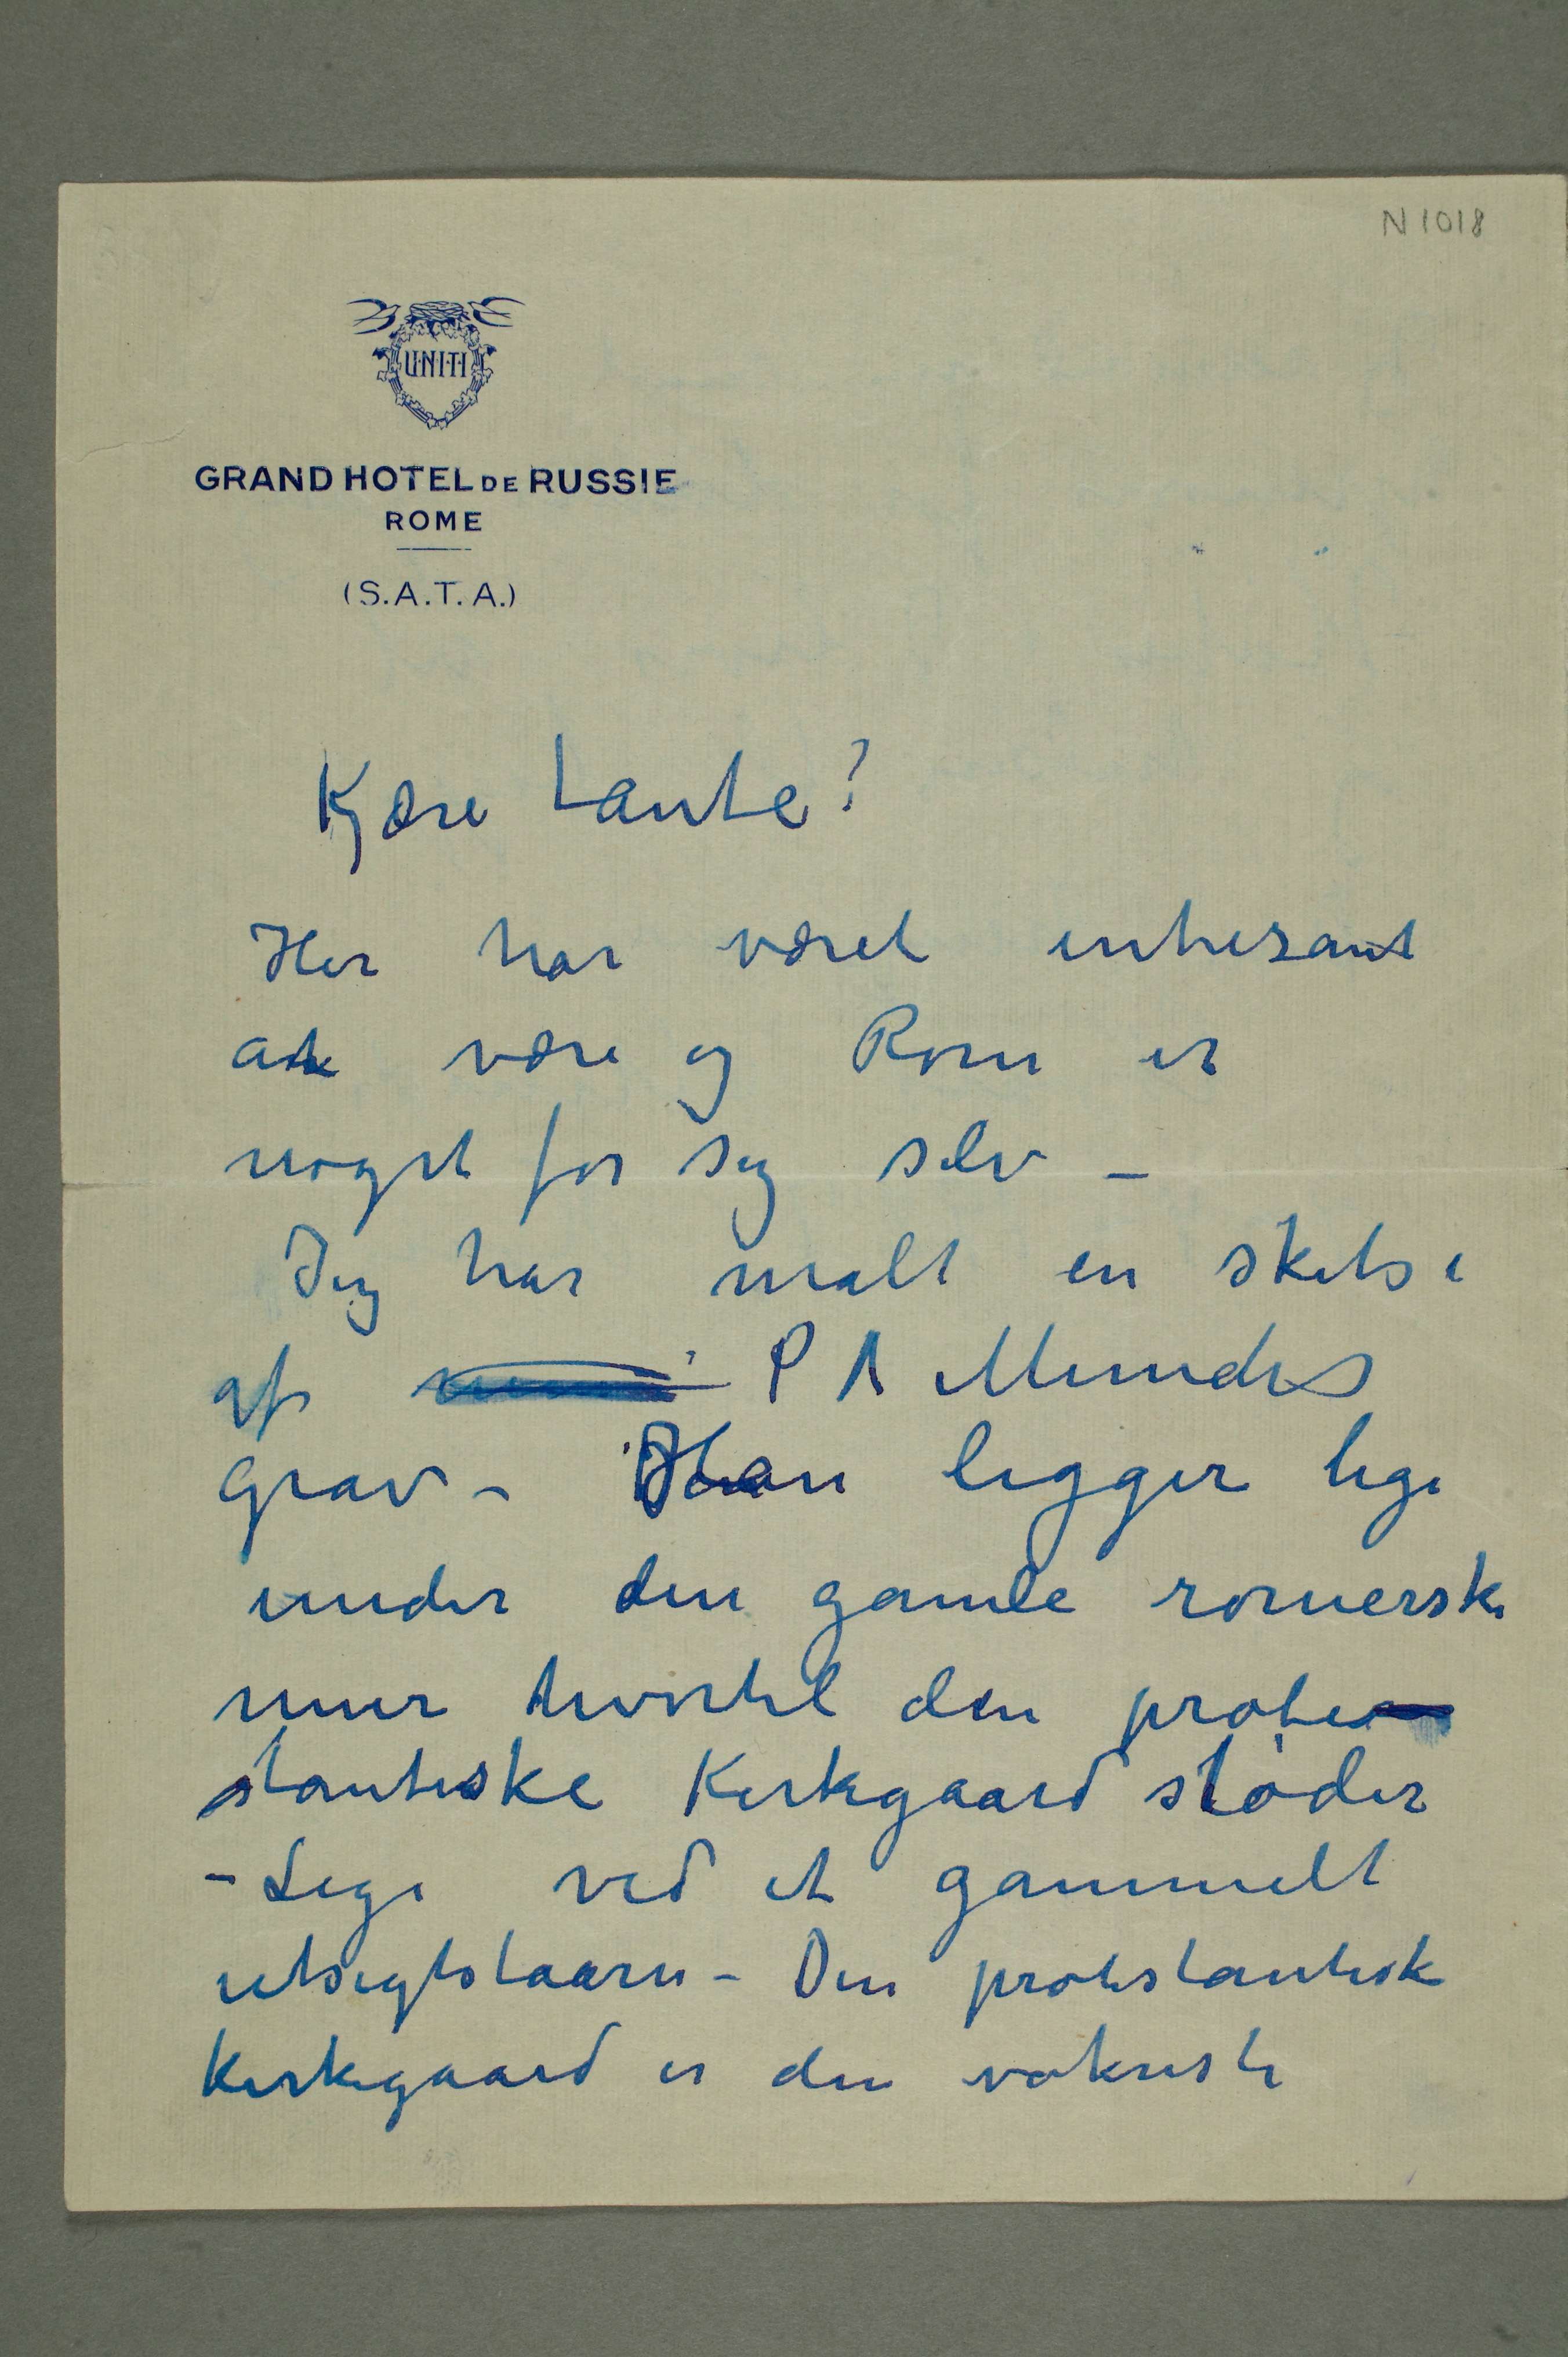 N 1018
UNITI
GRAND HOTEL DE RUSSIE
ROME
(S.A.T.A.)
Kjære tante!
Her har været intresant
at være og Rom er
noget for sig selv –
Jeg har malt en skitse
af P A Munchs
grav – Han ligger lige
under den gamle romerske
mur hvortil den prote
stantiske Kirkegaard støder
– Lige ved et gammelt
utsigtstaarn – Den protestantisk
Kirkegaard er den vakreste